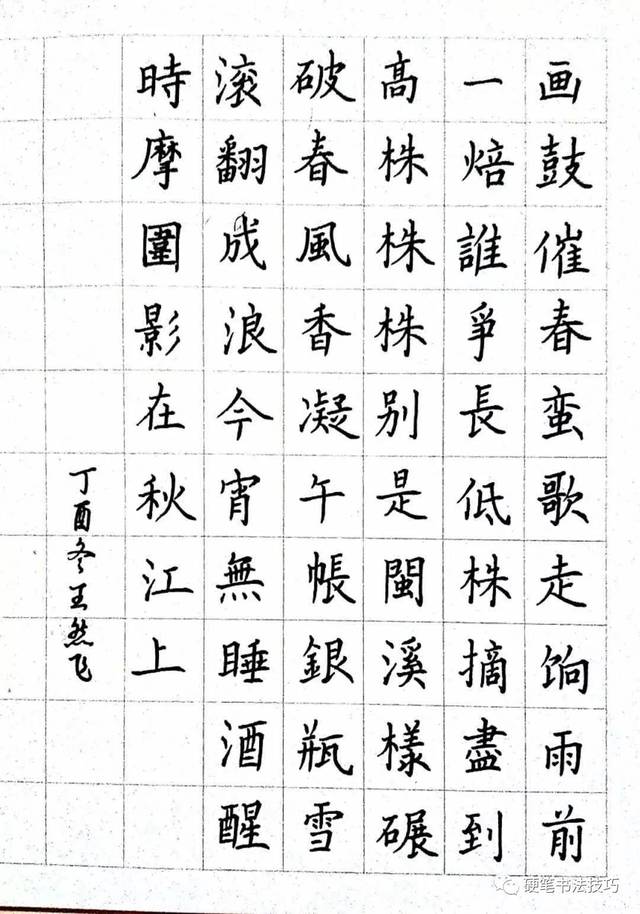 画鼓催春蛮歌走饷雨前
一焙誰爭長低株摘盡到
高株株株别是閩溪樣碾
破春風香凝午帳銀瓶雪
滚翻成浪今宵無睡酒醒
時摩圍影在秋江上
丁酉冬王然飞
硬笔书法技巧